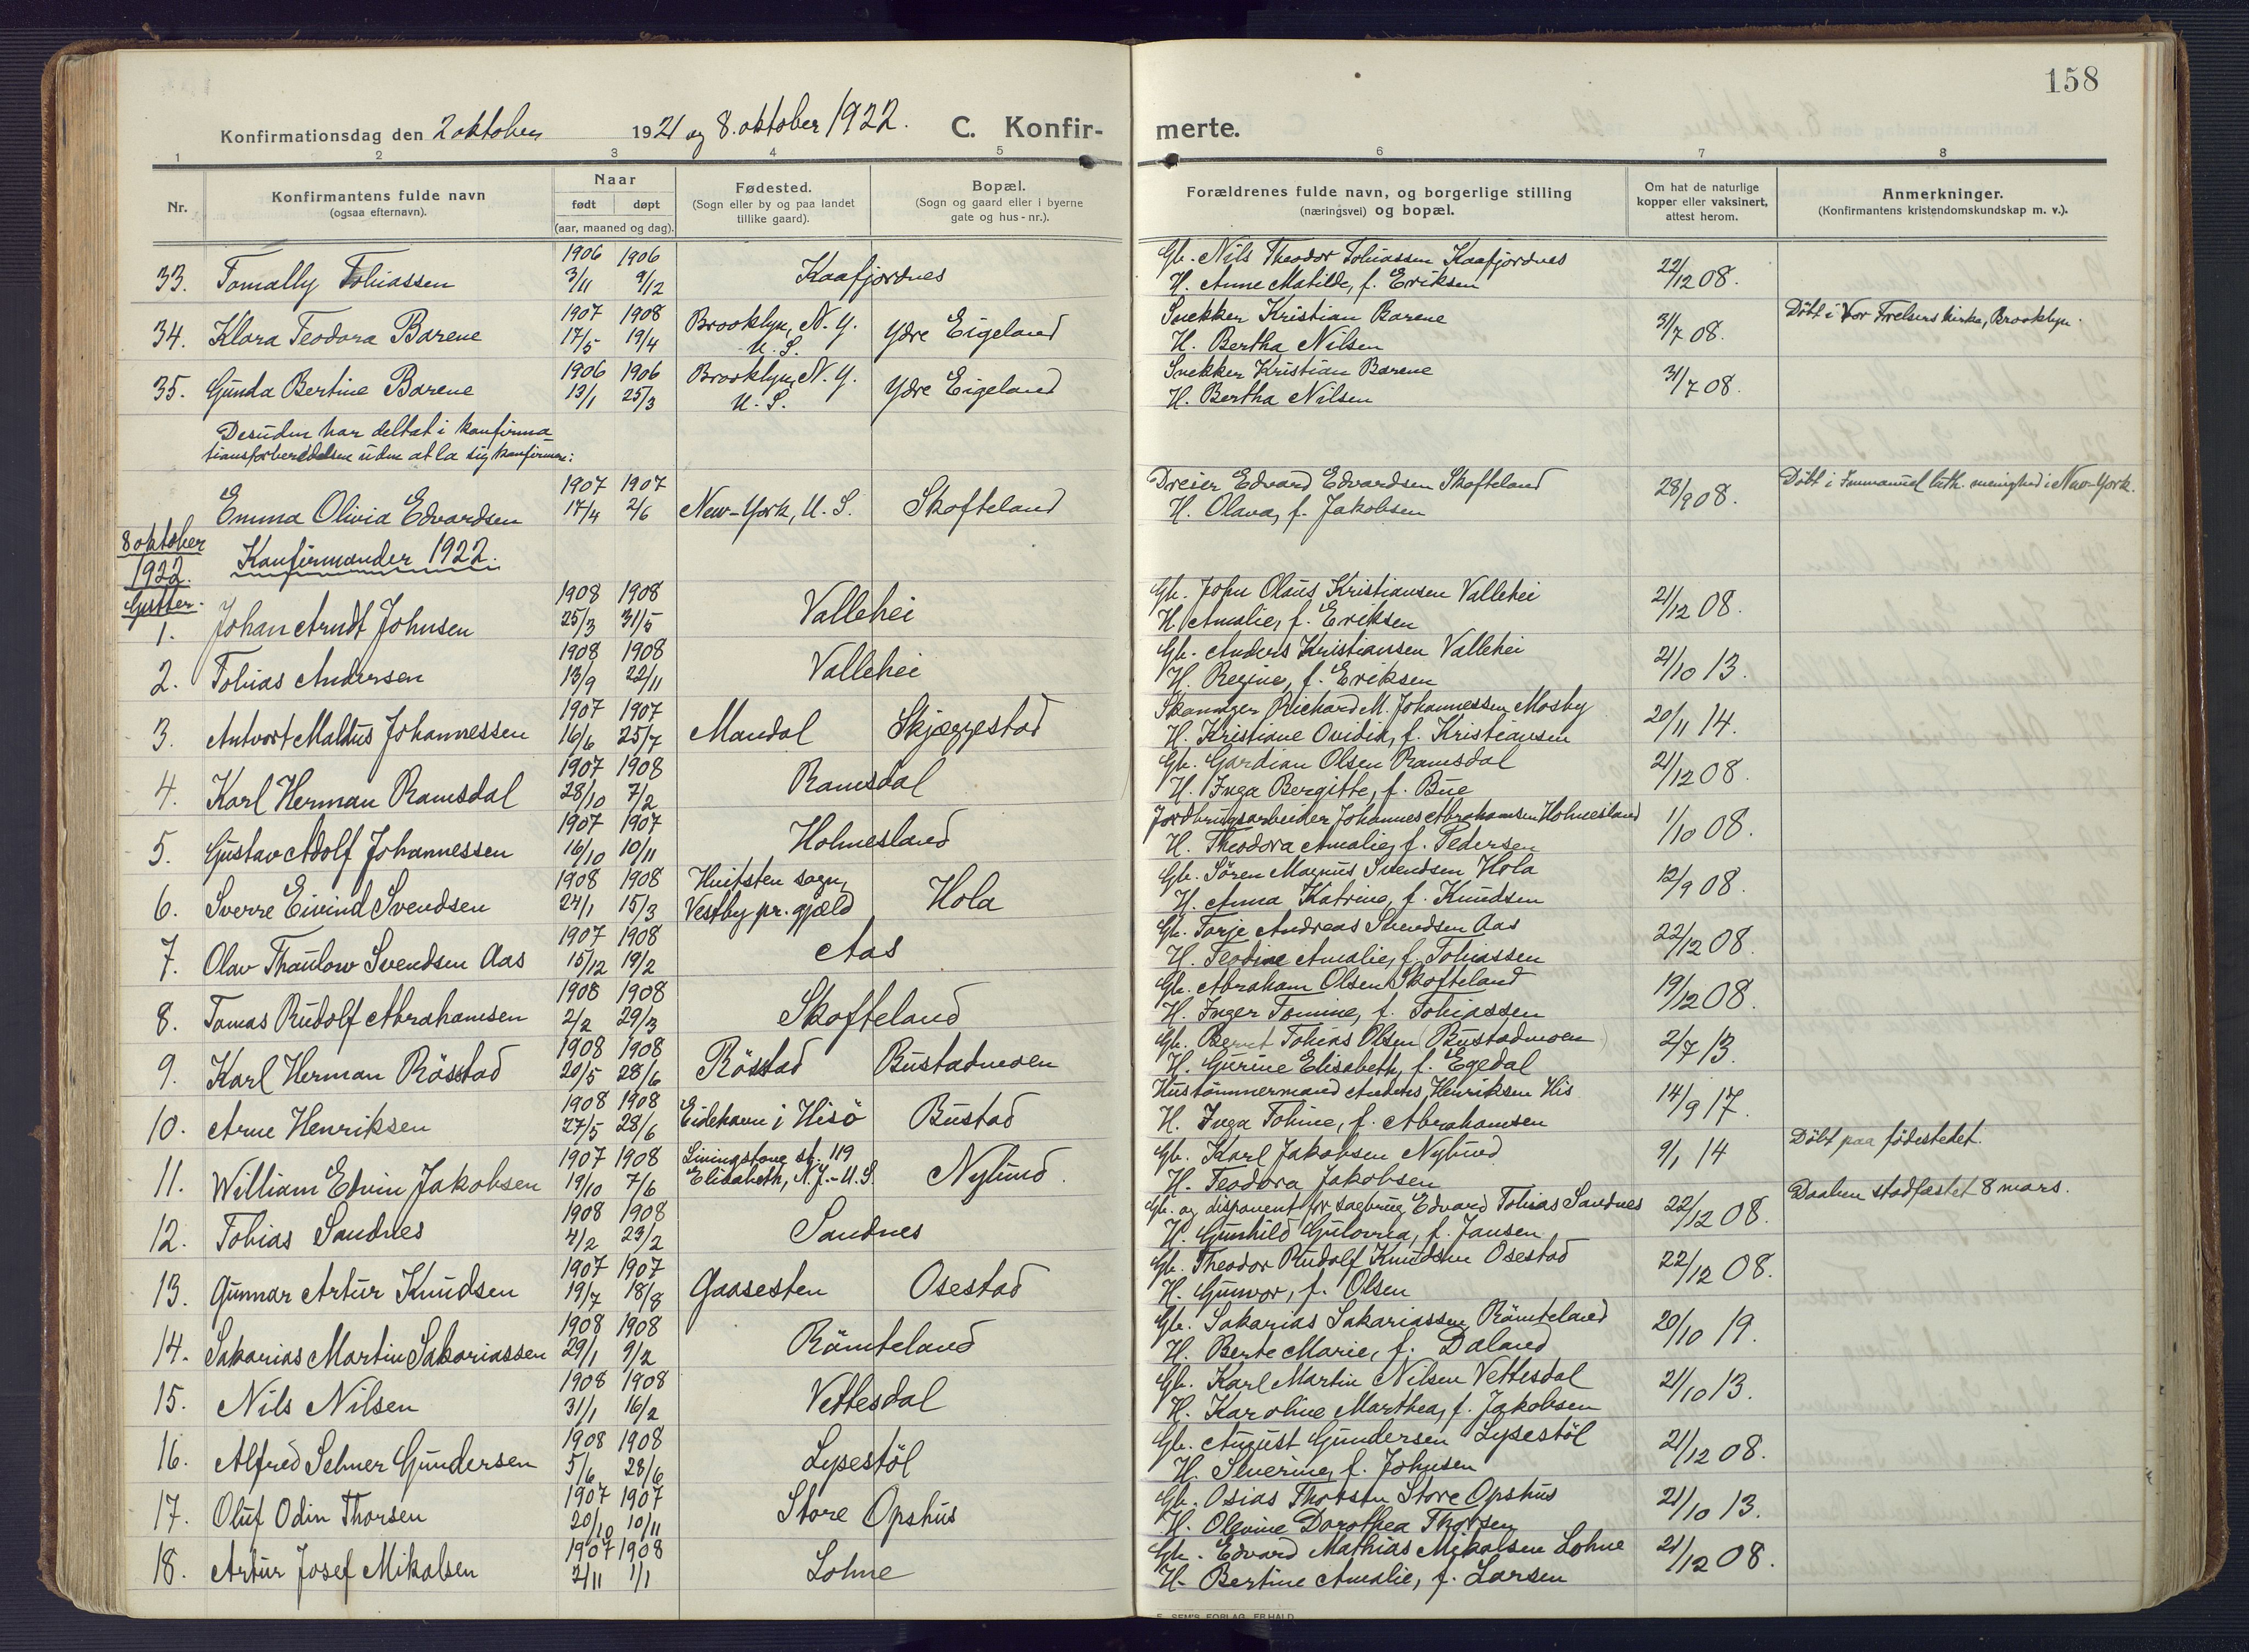 158
Konfirmationsdag den 2 oktober 1921 og 8. oktober 1922. C. Konfirmerte.
1 2 3 4 5 6 7 8
Nr. Konfirmantens fulde navn (ogsaa efternavn). Naar født døpt (aar, maaned og dag). Fødested. (Sogn eller by og paa landet tillike gaard). Bopæl. (Sogn og gaard eller i byerne gate og hus-nr.). Forældrenes fulde navn, og borgerlige stilling (næringsvei) og bopæl. Om hat de naturlige kopper eller vaksinert, attest herom. Anmerkninger. (Konfirmantens kristendomskundskap m. v.).
33. Tomally Tobiassen 1906 3/11 1906 9/12 Kaafjordnes Gb. Nils Theodor Tobiassen Kaafjordnes
H. Anne Matilde, f. Eriksen 22/12 08.
34. Klara Teodora Barene 1907 17/5 1908 19/4 Brooklyn, N.Y. U.S. Ydre Eigeland Snekker Kristian Barene
H. Bertha Nilsen 31/7 08. Döbt i Vor Frelsers kirke, Brooklyn.
35. Gunda Bertine Barene 1906 13/1 1906 25/3 Brooklyn, N.Y. U.S. Ydre Eigeland Snekker Kristian Barene
H. Bertha Nilsen 31/7 08.
Desuden har deltat i konfirma-
tionsforberedelsen uden at la sig konfirmere:
Emma Olivia Edvardsen 1907 17/4 1907 2/6 New-York, U.S. Skofteland Dreier Edvard Edvardsen Skofteland
H. Olava, f. Jakobsen 28/9 08. Döbt i Immanuel luth. menighed i New-York.
8 oktober 1922. Konfirmander 1922.
Gutter.
1. Johan Arndt Johnsen 1908 25/3 1908 31/5 Vallehei Gb. John Olaus Kristiansen Vallehei
H. Amalie, f. Eriksen 21/12 08.
2. Tobias Andersen 1908 13/9 1908 22/11 Vallehei Gb. Anders Kristiansen Vallehei
H. Regine, f. Eriksen 21/10 13.
3. Antvort Maldus Johannessen 1907 16/6 1907 25/7 Mandal Skjæggestad Richard M. Johannessen Mosby
H. Kristiane Ovidia, f. Kristiansen 20/11 14.
4. Karl Herman Ramsdal 1907 28/10 1908 7/2 Ramsdal Gb. Gardian Olsen Ramsdal
H. Inga Bergitte, f. Bue 21/12 08.
5. Gustav Adolf Johannessen 1907 16/10 1907 10/11 Holmesland Jordbrugsarbeider Johannes Abrahamsen Holmesland
H. Theodora Amalie, f. Pedersen 1/10 08.
6. Sverre Eivind Svendsen 1908 24/1 1908 15/3 Hvitsten sogn, Vestby pr. gjæld Hola Gb. Sören Magnus Svendsen Hola
H. Anna Katrine, f. Knudsen 12/9 08.
7. Olav Thaulow Svendsen Aas 1907 15/12 1908 19/2 Aas Gb. Torje Andreas Svendsen Aas
H. Teodine Amalie, f. Tobiassen 22/12 08.
8. Tomas Rudolf Abrahamsen 1908 2/2 1908 29/3 Skofteland Gb. Abraham Olsen Skofteland
H. Inger Tomine, f. Tobiassen 19/12 08.
9. Karl Herman Rösstad 1908 20/5 1908 28/6 Rösstad Bustadmoen Gb. Bernt Tobias Olsen (Bustadmoen)
H. Gurine Elisabeth, f. Egedal 2/7 13.
10. Arne Henriksen 1908 27/5 1908 28/6 Eidehavn i Hisö Bustad Hustömmermand Anders Henriksen His
H. Inga Tobine, f. Abrahamsen 14/9 17.
11. William Edvin Jakobsen 1907 19/10 1908 7/6 Livingstone st. 119 Elisabeth, N.J.-U.S. Nylund Gb. Karl Jakobsen Nylund
H. Teodora Jakobsen 9/1 14 Döbt paa födestedet.
Daaben stadfæstet 8 mars.
12. Tobias Sandnes 1908 4/2 1908 23/2 Sandnes Gb. og disponent for sagbrug Edvard Tobias Sandnes
H. Gunhild Gulovria, f. Jansen 22/12 08.
13. Gunnar Artur Knudsen 1907 19/7 1907 18/8 Gaasesten Osestad Gb. Theodor Rudolf Knudsen Osestad
H. Gunvor, f. Olsen 22/12 08.
14. Sakarias Martin Sakariassen 1908 29/1 1908 9/2 Römteland Gb. Sakarias Sakariassen Römteland
H. Berte Marie, f. Daland 20/10 19.
15. Nils Nilsen 1908 31/1 1908 16/2 Vettesdal Gb. Karl Martin Nilsen Vettesdal
H. Karoline Marthea, f. Jakobsen 21/10 13.
16. Alfred Selmer Gundersen 1908 5/6 1908 28/6 Lysestöl Gb. August Gundersen Lysestöl
H. Severine, f. Johnsen 21/12 08.
17. Oluf Odin Thorsen 1907 20/10 1907 10/11 Store Opshus Gb. Osias Thorsen Store Opshus
H. Olevine Dorothea Thorsen 21/10 13.
18. Artur Josef Mikalsen 1907 2/11 1908 1/1 Lohne Gb. Edvard Mathias Mikalsen Lohne
H. Bertine Amalie, f. Larsen 21/12 08.